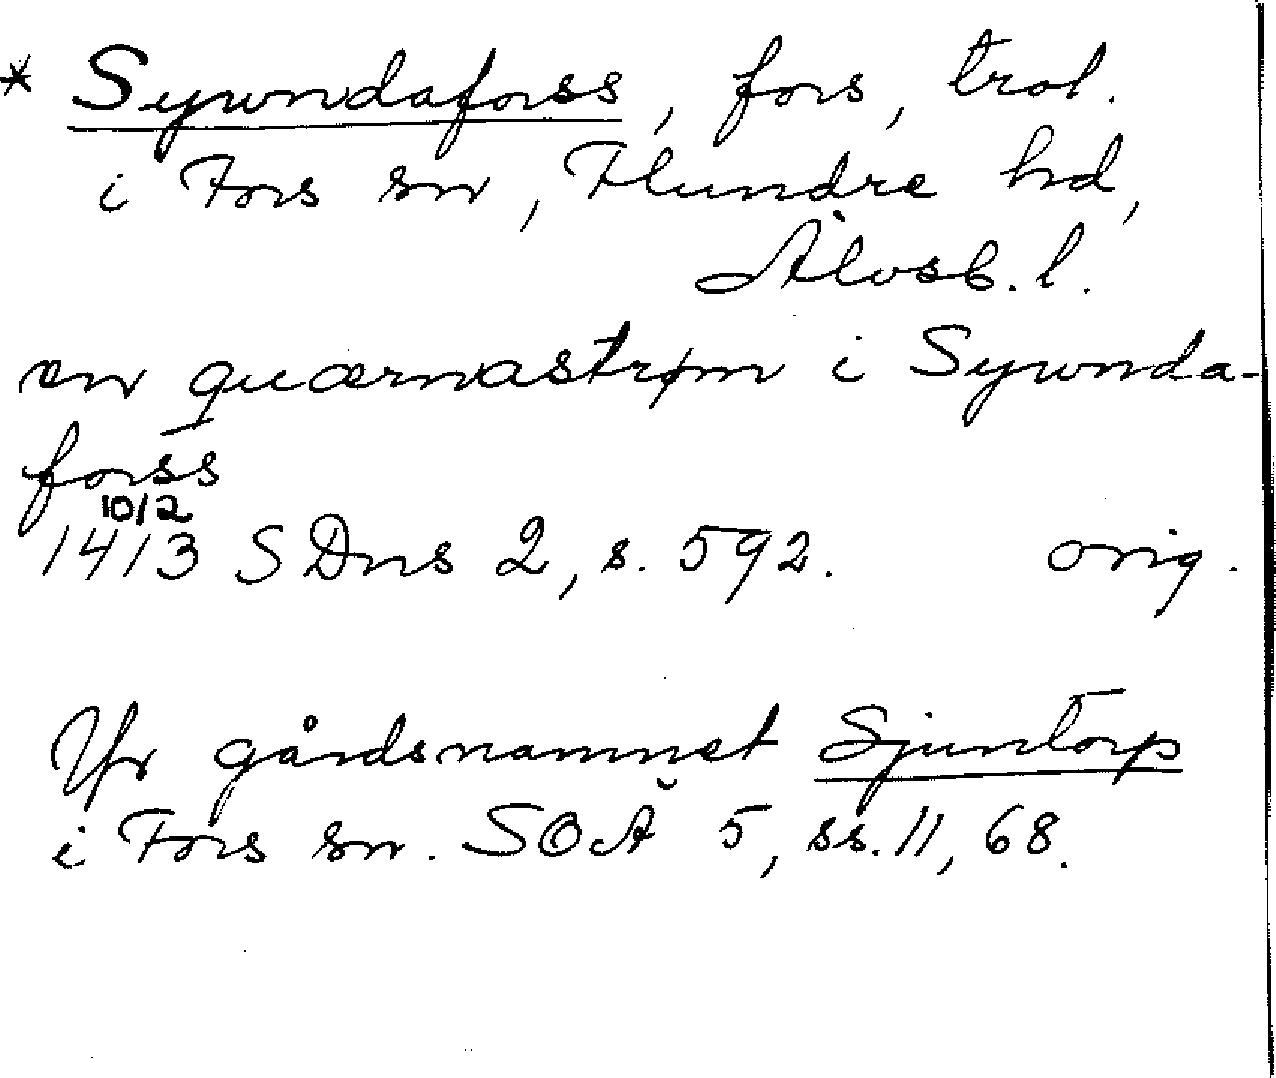 * Sywndaforss, fors, trol.
i Fors sn, Flundre hd,
Älvsb. l.
en quærnastrøm i Sywnda-
forss
10/2
1413 SDns 2, s. 592. orig.
Jfr gårdsnamnet Sjuntorp
i Fors sn. SOÄ 5, ss. 11, 68.